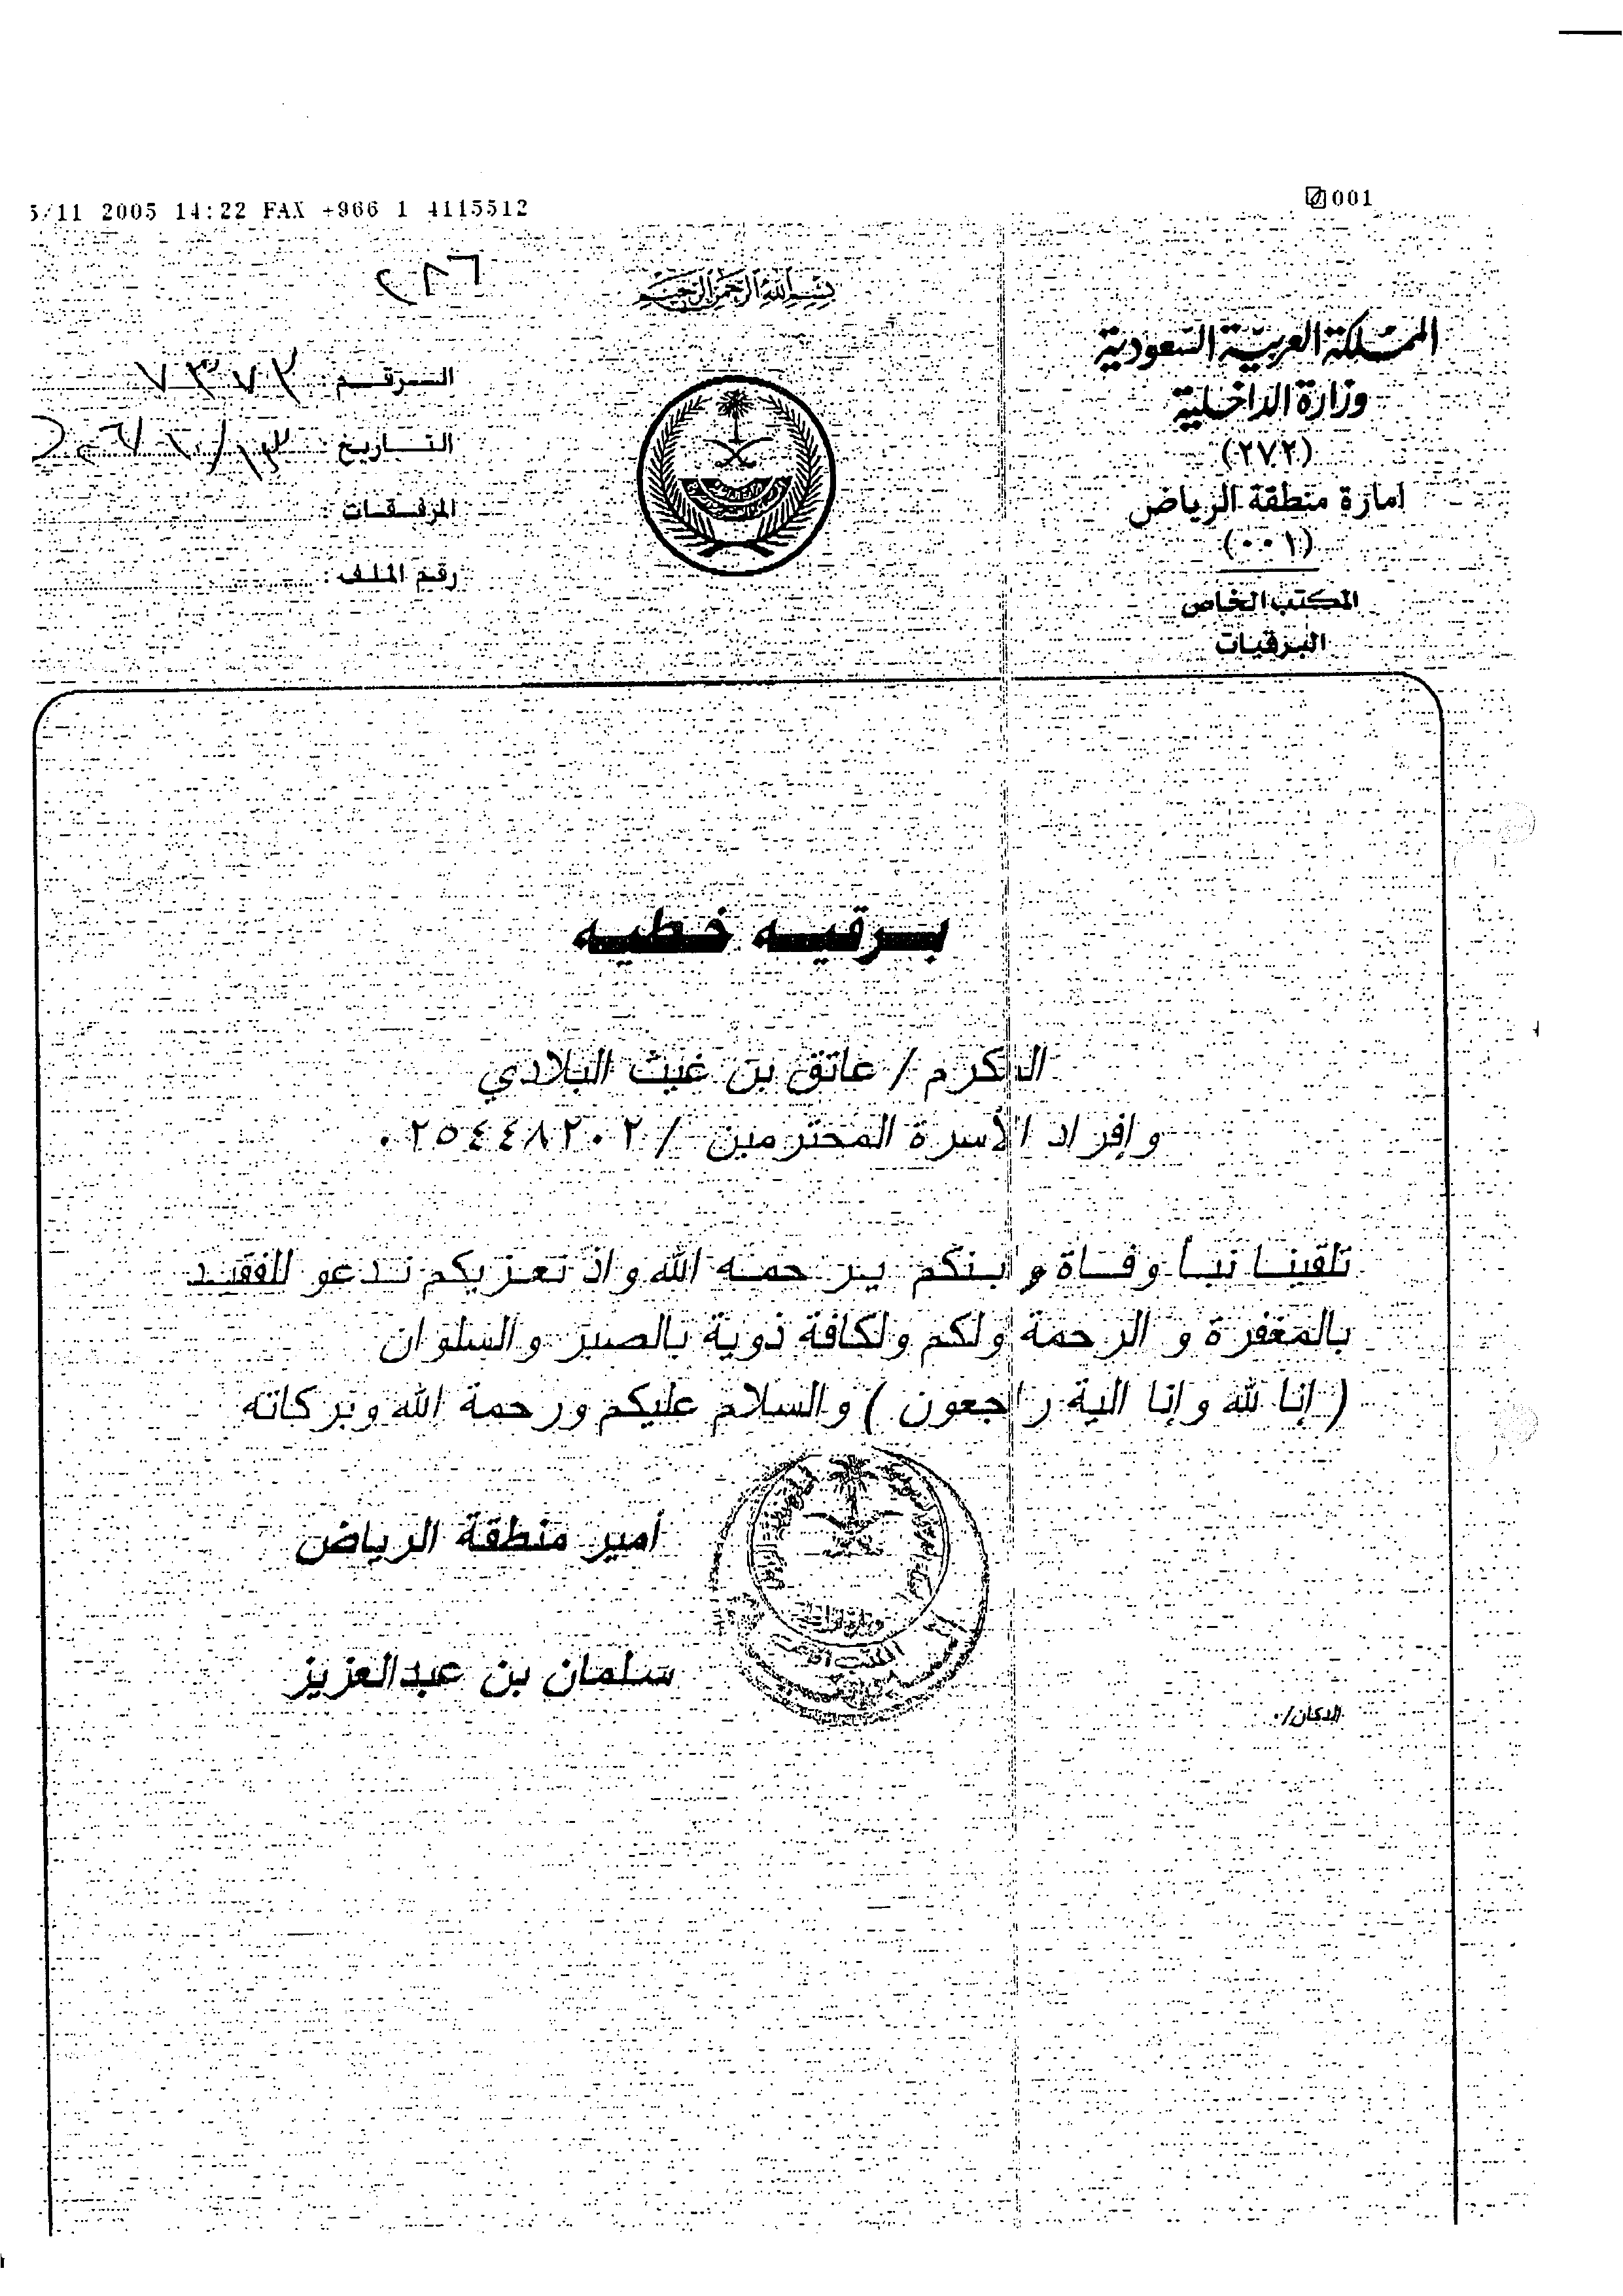 5/11 2005 14:22 FAX +966 1 4115512
001
بسم الله الرحمن الرحيم
المملكة العربية السعودية
وزارة الداخلية
(٢٧٢)
امارة منطقة الرياض
(٠٠١)
المكتب الخاص
البرقيات
الـرقــم :
التــاريخ :
المرفـقـات :
رقـم الملـف :
بــرقيــه خـطيــه
المكرم / عاتق بن غيث البلادي
وإفراد الأسرة المحترمين / ٠٢٥٤٤٨٢٠٢
تلقينــا نبـأ وفــاة وأبـنكم يـرحمـه الله واذ نعـزيكم نـدعو للفقيـد
بالمغفرة و الرحمة ولكم ولكافة ذوية بالصبر والسلوان
( إنا لله وإنا الية راجعون ) والسلام عليكم ورحمة الله وبركاته
أمير منطقة الرياض
سلمان بن عبدالعزيز
الدكان/٠